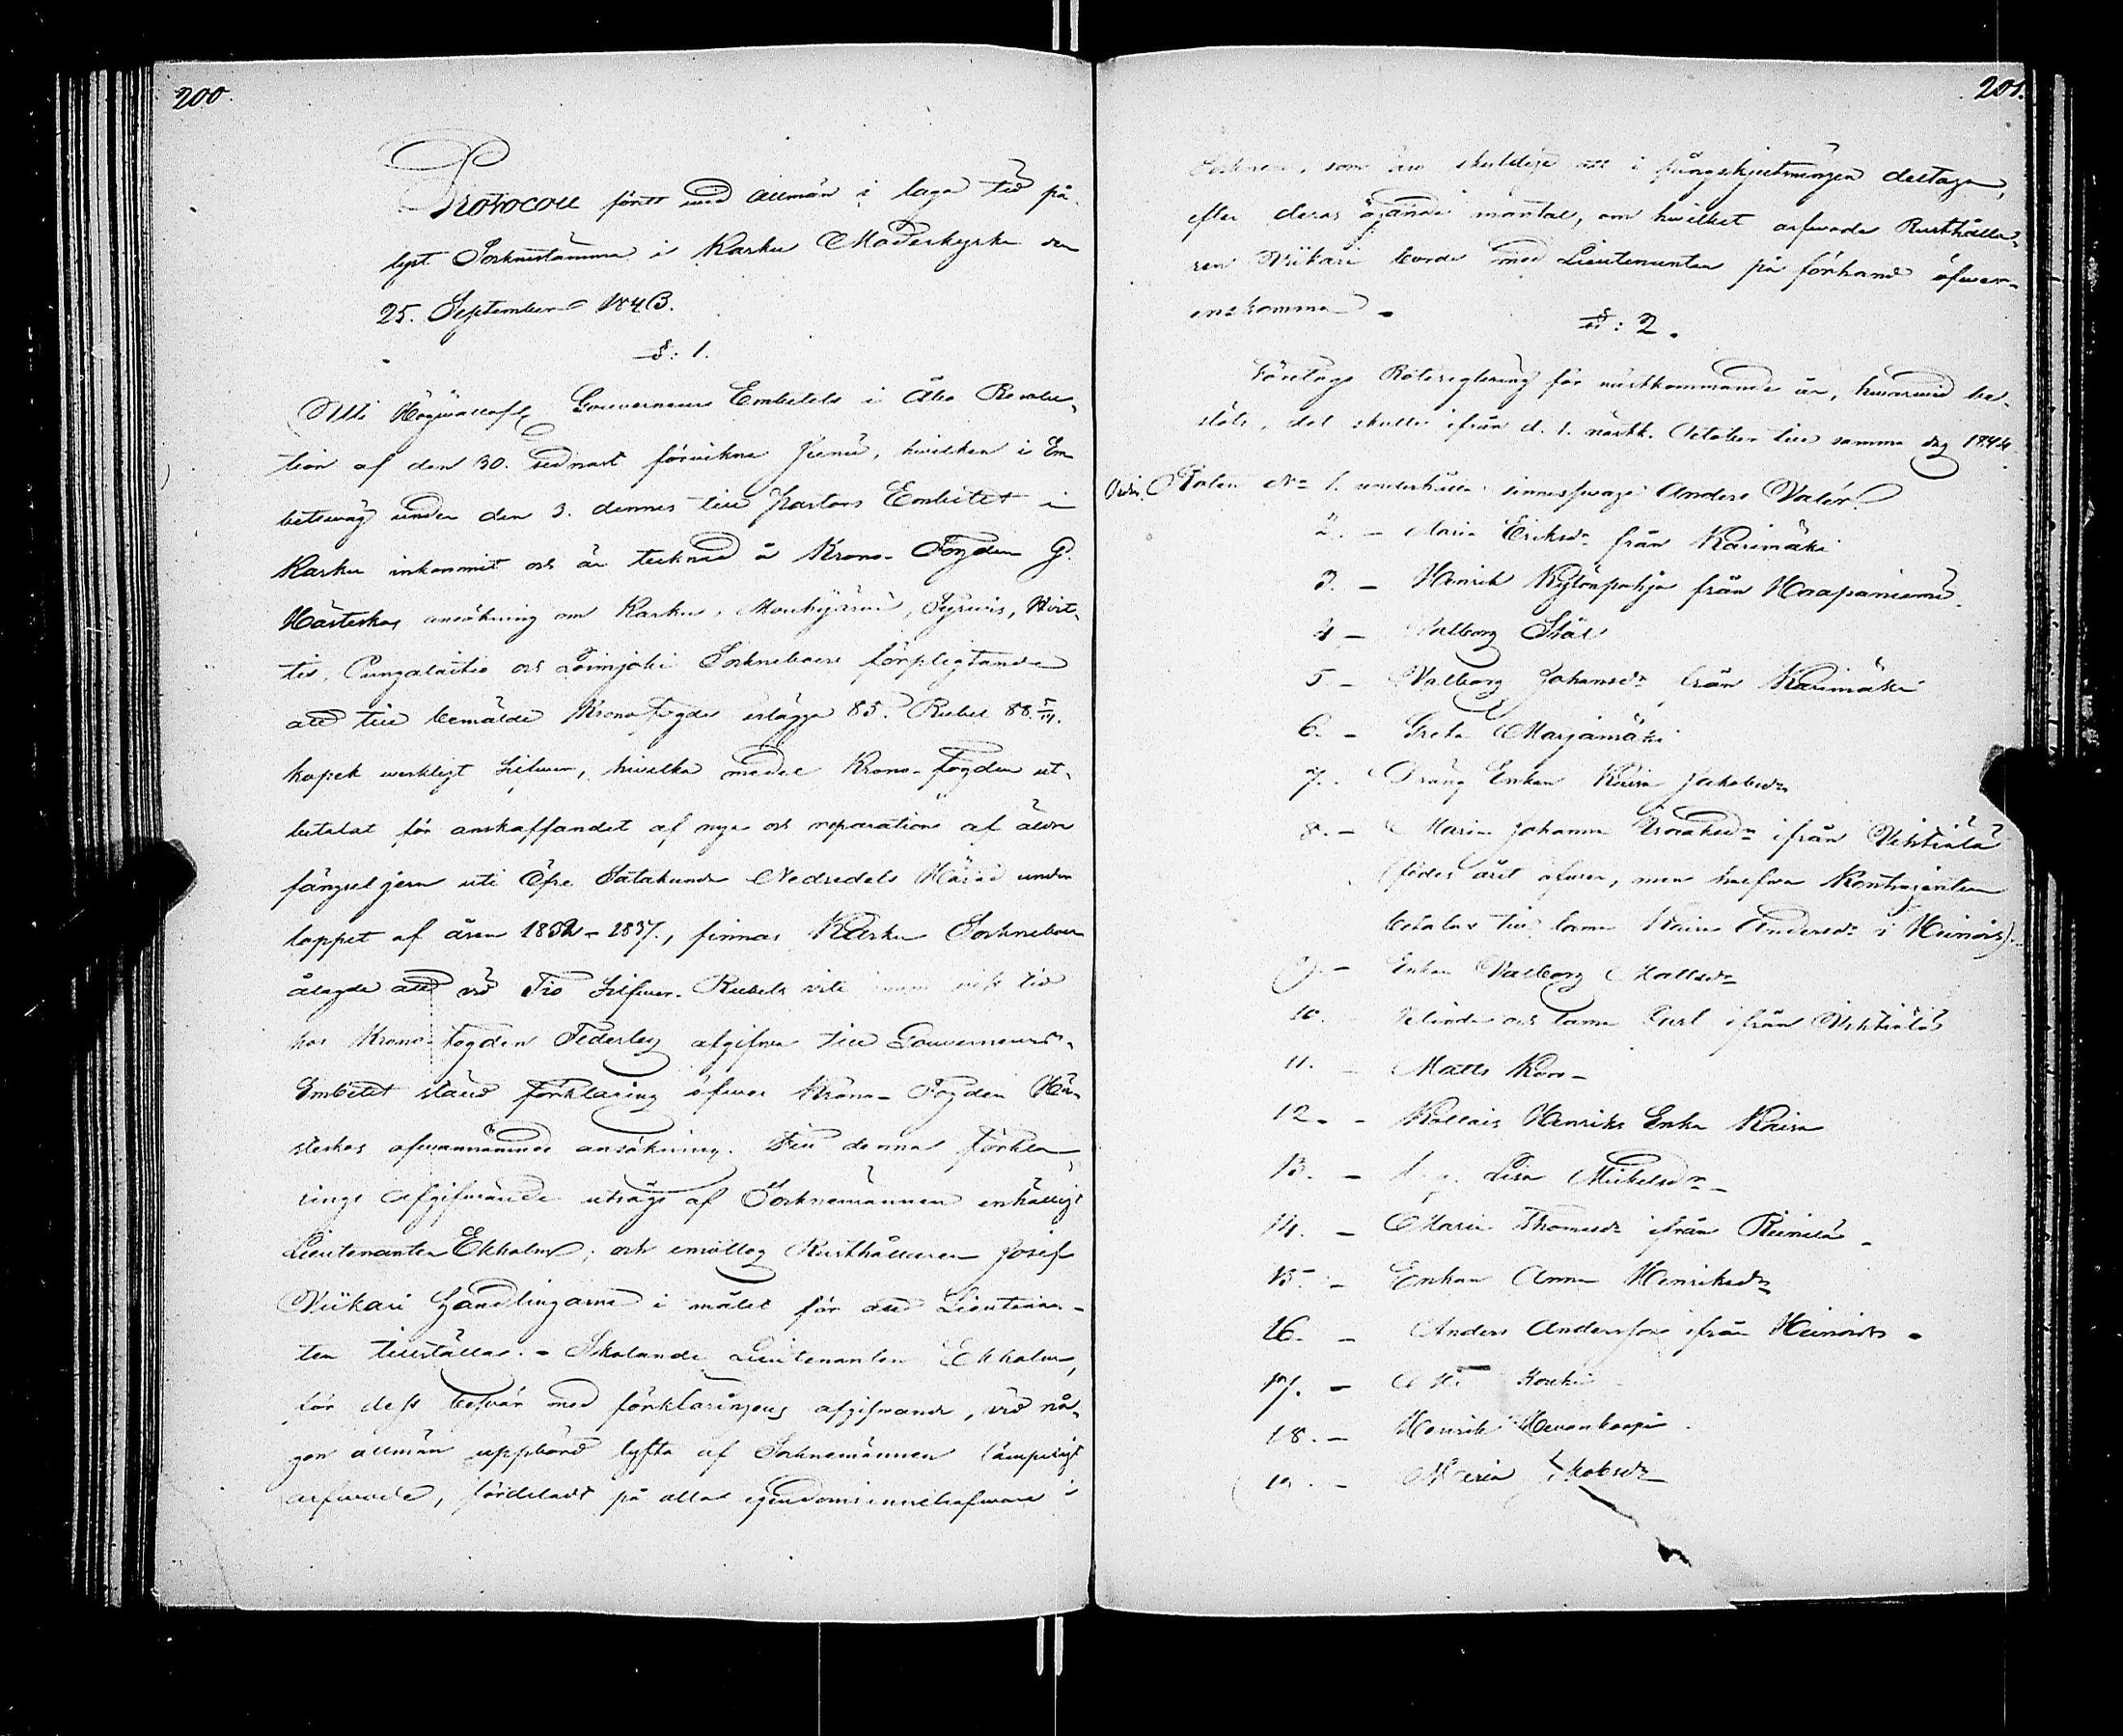 200.
Protocoll fördt wid allmän i laga tid på-
lyst Socknestämma i Karku Moderkyrka den
25. September 1843.
§: 1.
Uti Högwällofl. Gouverneurs Embetets i Åbo Resolu-
tion af den 30. sednast förvikne Junii, hvilken i Em-
betswäg under den 3. dennes till Pastors Embetet i
Karku inkommit och är tecknad å Krono-Fogden G.
Hästeskos ansökning om Karku, Mouhijärvi, Tyrvis, Hvit-
tis, Pungalaitio och Loimjoki Sockneboers förpligtande
att till bemälde Kronofogde erlägga 85. Rubel 88.
kopek werkligt Silfwer, hvilka medel Krono-Fogden ut-
betalat för anskaffandet af nya och reparation af äldre
fängsel jern uti Öfre Satakunda Nedredels Härad under
loppet af åren 1832-1837., finnas Karku Sockneboer
ålagde att wid Tio Silfwer-Rubels vite inom viss tid
hos Krono-Fogden Federley afgifwa till Gouverneurs-
Embetet ställd förklaring öfwer Krono-Fogden Hä-
steskos ofwannämnde ansökning. Till denna förkla-
rings afgifwande utsågs af Socknemännen enhälligt
Lieutenanten Ekholm; och emottog Rusthållaren Josef
Niikari Handlingarne i målet för att Lieutenan-
ten tillställas. - Skolande Lieutenanten Ekholm,
för dess besvär med förklaringens afgifwande, vid nå-
gon allmän uppbörd lyfta af Socknemännen lämpeligt
arfwode, fördeladt på alla egendomsinnehafware i
201.
Socknen, som äro skyldige att i fångskjutsningen deltaga,
efter deras ägande mantal, om hwilket arfwode Rusthålla-
ren Niikari borde med Lieutenanten på förhand öfwer-
enskomma.
§: 2.
Företogs Rotereglering för nästkommande år, hwarwid be-
slöts, det skulle ifrån d. 1. nästk. October till samma dag 1844.
Roten No 1. underhålla sinnessvage Anders Valén.
2. - Maria Eriksdr från Karimäki
3. - Henrik Kylänpohja från Haapaniemi.
4 - Valborg Skäl
5 - Valborg Johansdr från Karimäki
6. - Greta Marjamäki
7. - Dräng Enkan Kaisa Jakobsdr
8. - Maria Johanna Isaaksdr ifrån Vihtiälä
(födes året öfwer, men halfwa Kontingenten
betalas till lama Kaisa Andersdr i Heinois).
9. - Enkan Valborg Mattsdr
10. - blinda och lama Gust ifrån Vihtiälä
11. - Matts Koro -
12. - Kallais Henriks Enka Kaisa
13. - Lisa Mickelsdr -
14. - Maria Thomasdr ifrån Reinilä -
15. - Enkan Anna Henriksdr
16. - Anders Andersson ifrån Heinois -
17. - Koski
18. - Henrik Hewonkoopi.
19. - Maria Jakobsdr